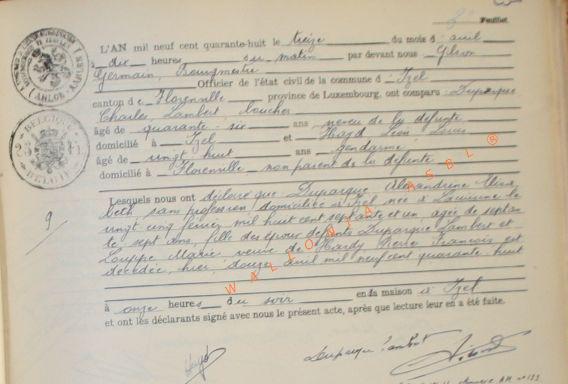 Feuillet.
L'AN mil neuf cent quarante-huit le treize du mois d'avril
dix heures du matin par devant nous Gilson
Germain, Bourgmestre
Officier de l'état civil de la commune d'Izel
canton de Florenville province de Luxembourg, ont comparu : Duparque
Charles, Lambert,
âgé de quarante-six ans neveu de la défunte
domicilié à Izel et Hazd Léon, Louis
âgé de vingt huit ans gendarme
domicilié à Florenville non parent de la défunte
Lesquels nous ont déclaré que Duparque Alexandrine Elisa
beth sans profession, domiciliée à Izel née à
vingt cinq février mil huit cent septante et un, agée de septan
te sept ans, fille des époux défunts Duparque Lambert et
Marie, veuve de Hardy Pierre François est
décédée, hier, douze avril mil neuf cent quarante huit
9
à onze heures du soir en la maison à Izel
et ont les déclarants signé avec nous le présent acte, après que lecture leur en a été faite.
Duparque Lambert
WALLONIA ASBL ®